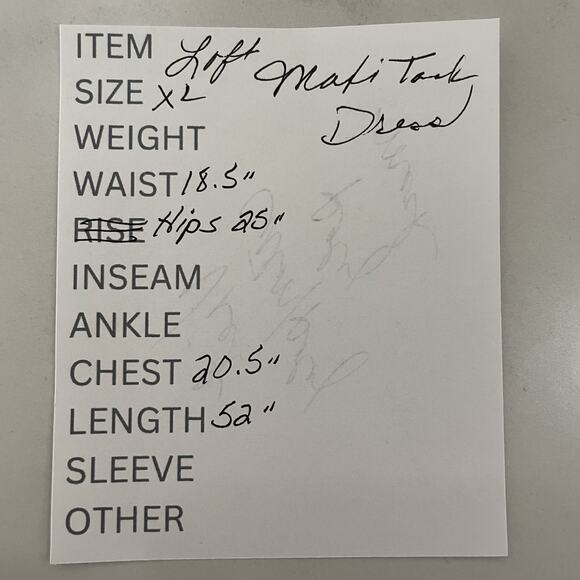 ITEM Loft Maxi Tank
SIZE XL Dress
WEIGHT
WAIST 18.5"
RISE Hips 25"
INSEAM
ANKLE
CHEST 20.5"
LENGTH 52"
SLEEVE
OTHER